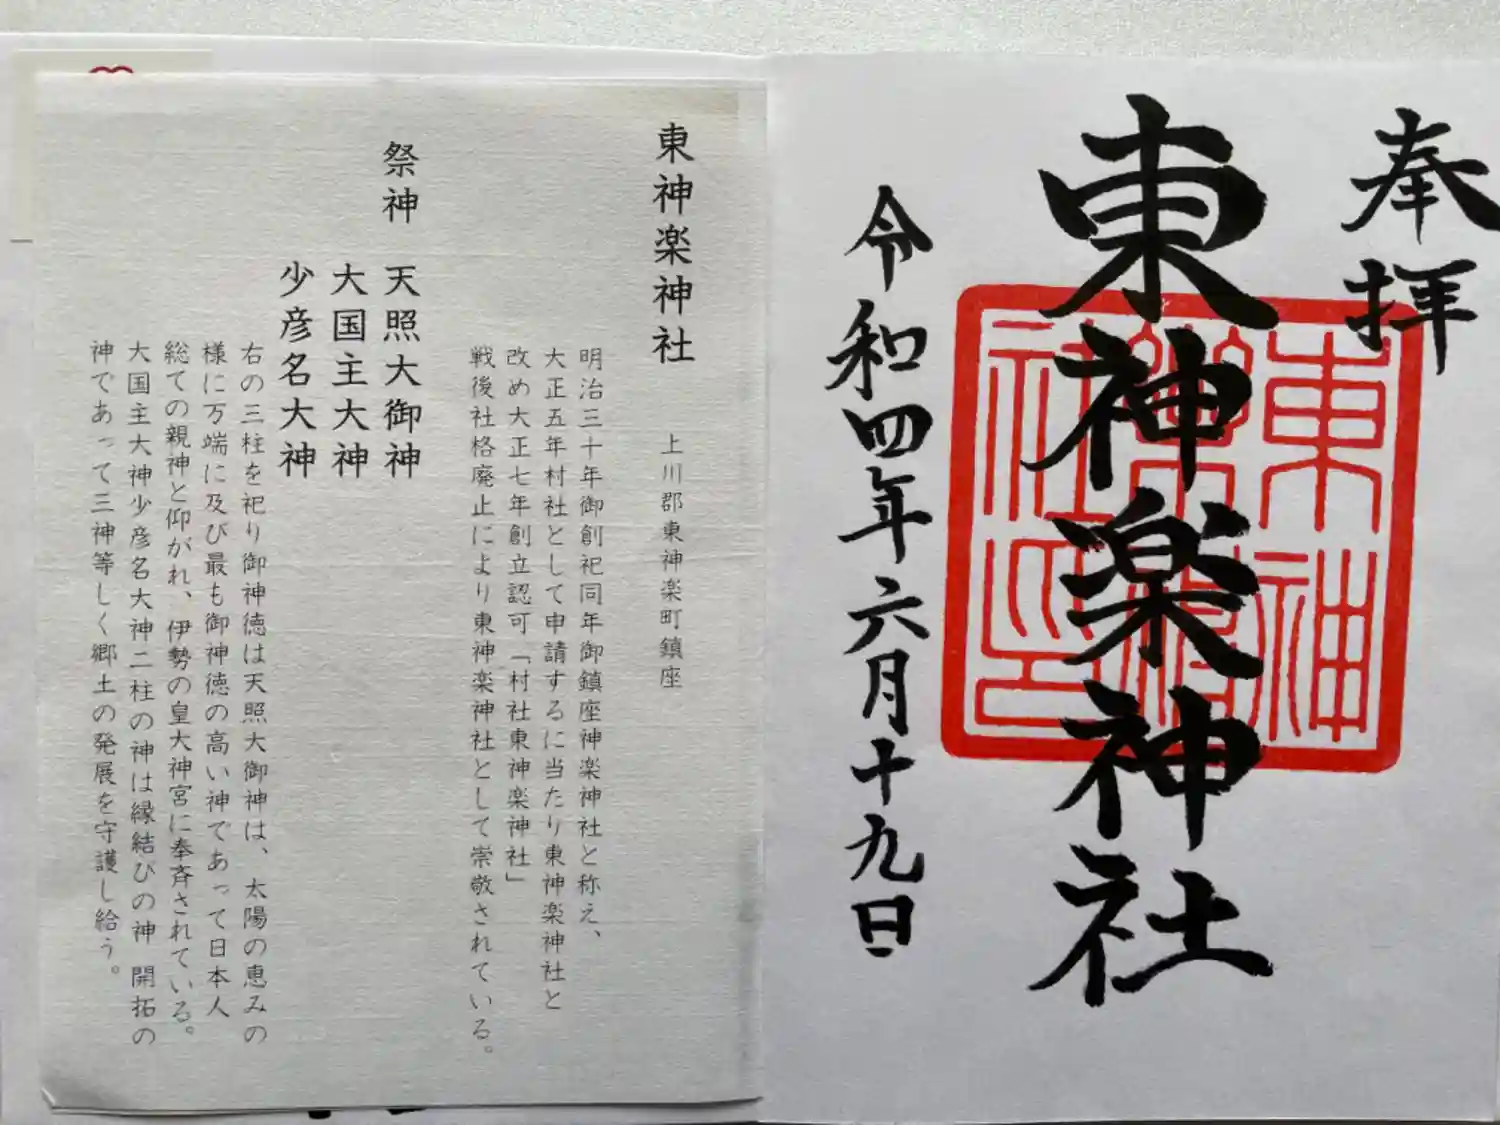 奉拝
東神楽神社
令和四年六月十九日
東神
楽神
社印
東神楽神社
上川郡東神楽町鎮座
明治三十年御創祀同年御鎮座神楽神社と称え、
大正五年村社として申請するに当たり東神楽神社と
改め大正七年創立認可「村社東神楽神社」
戦後社格廃止により東神楽神社として崇敬されている。
祭神 天照大御神
大国主大神
少彦名大神
右の三柱を祀り御神徳は天照大御神は、太陽の恵みの
様に万端に及び最も御神徳の高い神であって日本人
総ての親神と仰がれ、伊勢の皇大神宮に奉斉されている。
大国主大神少彦名大神二柱の神は縁結びの神 開拓の
神であって三神等しく郷土の発展を守護し給う。